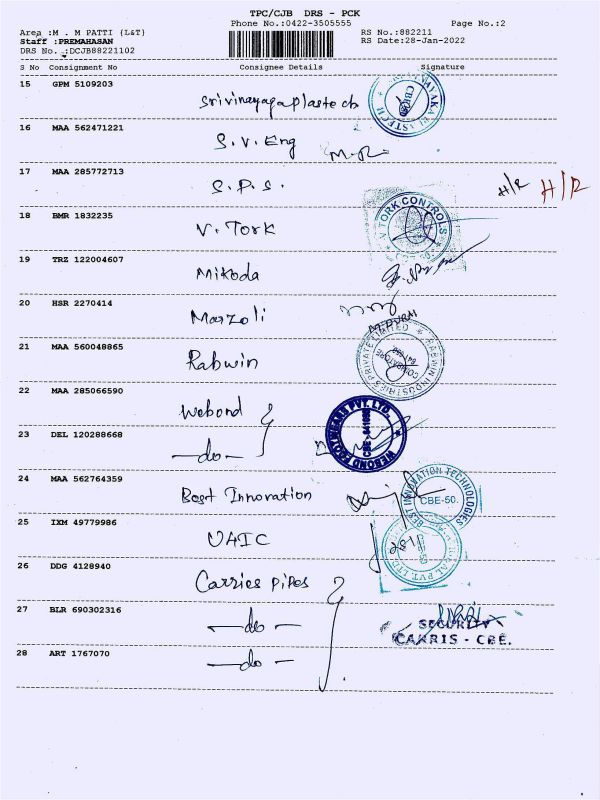 TPC/CJB DRS - PCK
Phone No.:0422-3505555 Page No.:2
Area :M . M PATTI (L&T) RS No.:882211
Staff :PREMAHASAN RS Date:28-Jan-2022
DRS No. :DCJB88221102
S No Consignment No Consignee Details Signature
15 GPM 5109203
Srivinayagaplastech
16 MAA 562471221
S.V. Eng
17 MAA 285772713
S.P.S. H/R H/R
18 BMR 1832235
V. Tork V TORK CONTROLS
19 TRZ 122004607
Mikoda
20 HSR 2270414
Marzoli
21 MAA 560048865
Rabwin RABWIN INDUSTRIES PRIVATE LIMITED COIMBATORE
22 MAA 285066590
Webond WEBOND ENGINEERS PVT. LTD.
23 DEL 120288668
-do-
24 MAA 562764359
Best Innovation BEST INNOVATION TECHNOLOGIES CBE-50.
25 IXM 49779986
UAIC
26 DDG 4128940
Carries Pipes
27 BLR 690302316
-do- SECURITY
CARRIS - CBE.
28 ART 1767070
-do-